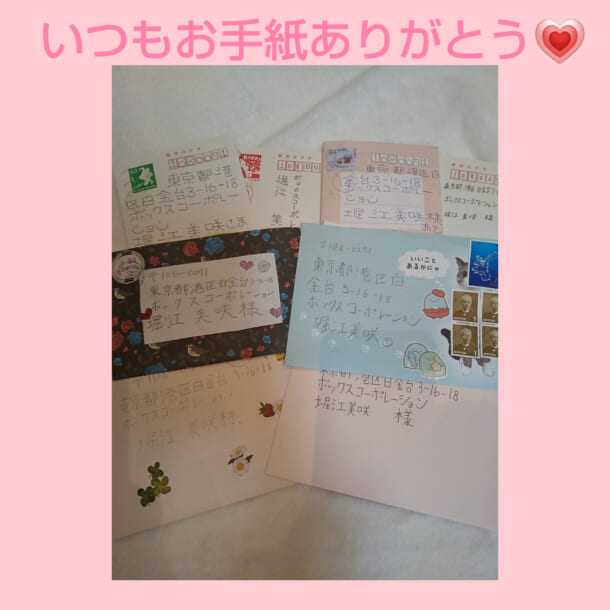 いつもお手紙ありがとう
東京都港
区白金台3-16-18
ボックスコーポレー
ション
堀江美咲さま
1080071
10800
ボックスコーポレ
堀江 美
東京都港区白
金台3-16-18
ボックスコーポレー
ション
堀江美咲様
ボックスコーポレーション
堀江 美咲 様
〒108-0071
東京都港区白金台3-16-18
ボックスコーポレーション
堀江 美咲 様
〒108-0071
東京都港区白
金台3-16-18
ボックスコーポレーション
堀江美咲
いいこと
あるかにゃ
東京都港区白金台3-16-18
ボックスコーポレーション
堀江 美咲様
東京都港区白金台3-16-18
ボックスコーポレーション
堀江美咲 様